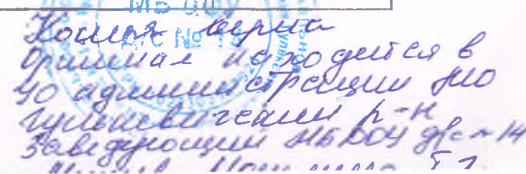 МБ ДОУ
Д/С №
Копия верна
Оригинал находится в
УО администрации МО
Гулькевичский р-н
Заведующий МБДОУ д/с №14